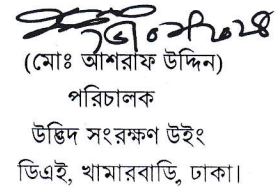 (মোঃ আশরাফ উদ্দিন)
পরিচালক
উদ্ভিদ সংরক্ষণ উইং
ডিএই, খামারবাড়ি, ঢাকা।